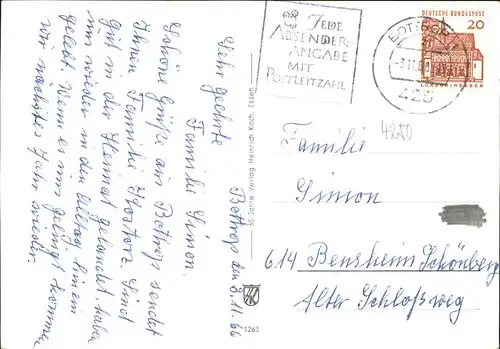 Bottrop den 3.11.66
Sehr geehrte
Familie Simon.
Schöne Grüße aus Bottrop sendet
Ihnen Familie Kostorz. Sind
gut in der Heimat gelandet. haben
uns wieder in den Alltag hinein
gelebt. Wenn es uns gelingt kommen
wir nächstes Jahr wieder.
65 Jahre Verlag Heinrich Koch, Essen
1263
JEDE
ABSENDER-
ANGABE
MIT
POSTLEITZAHL
-3.11.66
425
DEUTSCHE BUNDESPOST
20
LORSCH/HESSEN
4250
Familie
Simon
614 Bensheim Schönberg
Alter Schloßweg